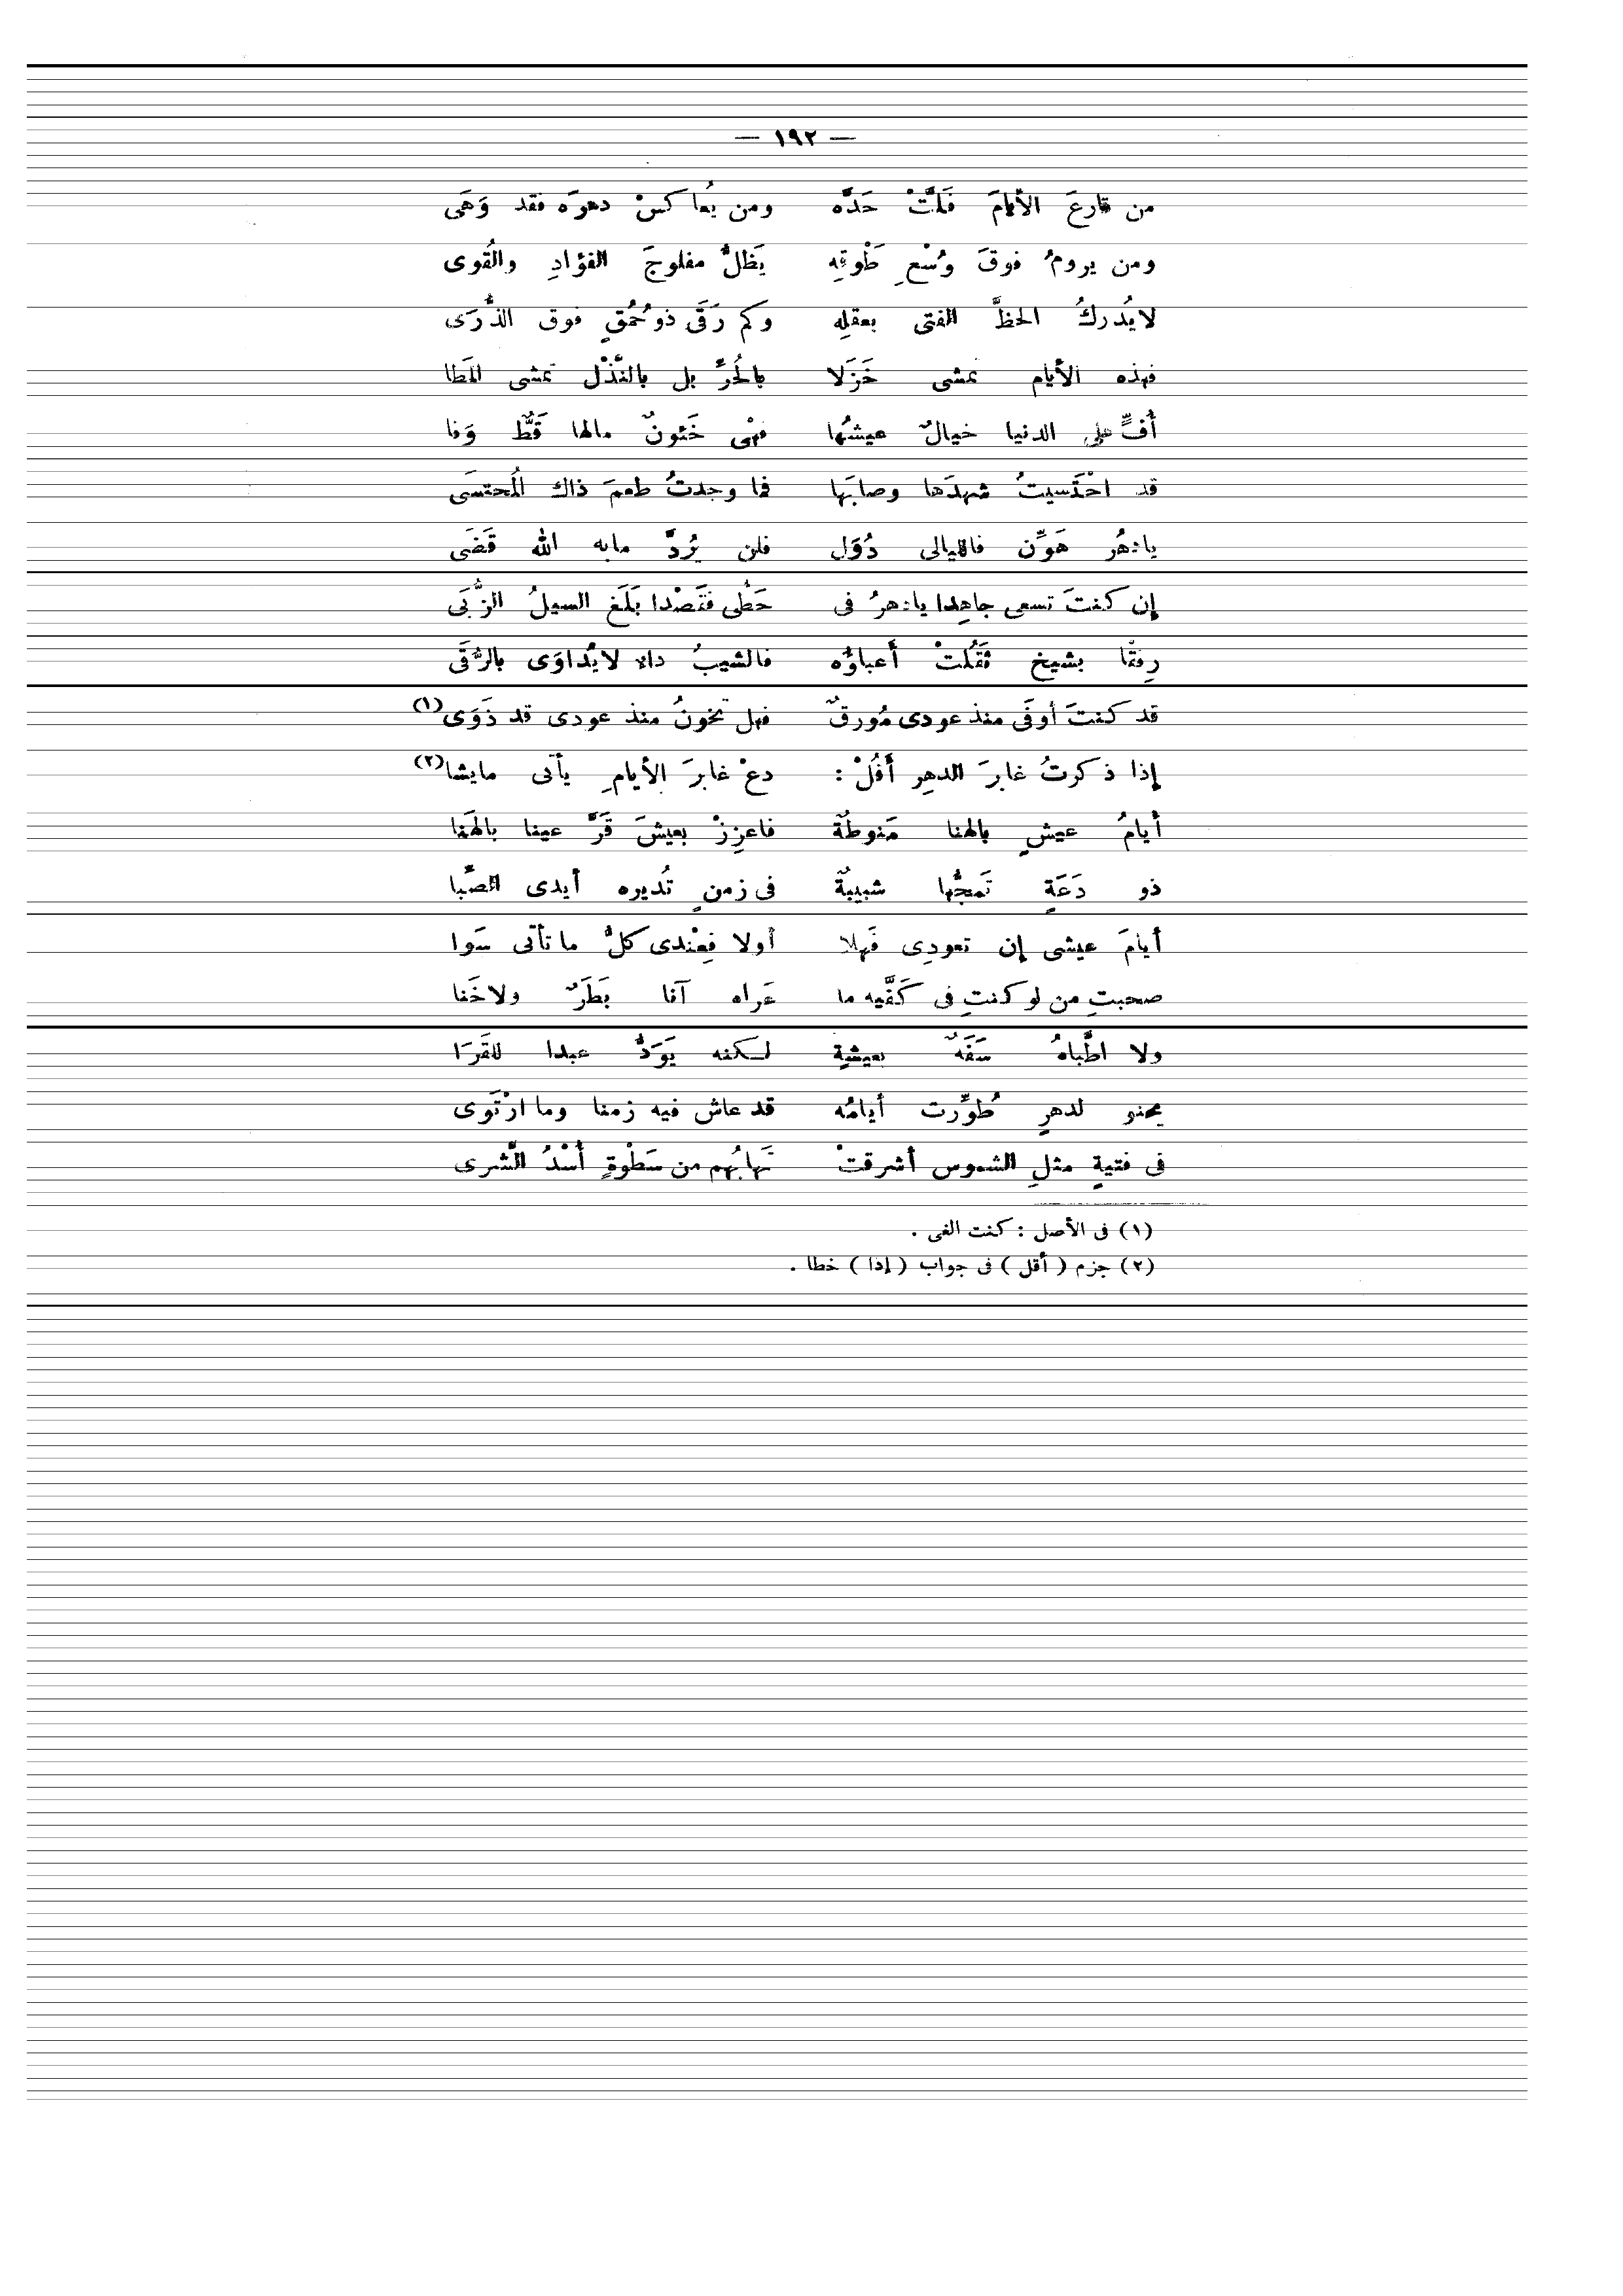 — ١٩٢ —
من قارعَ الأيامَ فَلَّتْ حَدَّه ومن يُعاكسْ دهرَه فقد وَهَى
ومن يرومُ فوقَ وُسْعِ طَوْقِه يَظَلُّ مفلوجَ الفؤادِ والقُوى
لايُدركُ الحظَّ الفتى بعقلِه وكم رَقَى ذو حُمُقٍ فوق الذُّرَى
فهذه الأيام تمشى خَزَلا بالحُرِّ بل بالنَّذْل تمشى المَطا
أُفٍّ على الدنيا خيالٌ عيشُها فهْى خَئونٌ مالها قَطُّ وَفا
قد احْتَسيتُ شهدَها وصابَها فما وجدتُ طعمَ ذاك المُحتسَى
يادهُر هَوِّن فالليالى دُوَل فلن يُرَدَّ مابه الله قَضَى
إن كنتَ تسعى جاهِدا يادهرُ فى حَطِّى فقَصْدا بَلَغ السيلُ الزُّبَى
رِفقا بشيخ ثَقُلتْ أعباؤُه فالشيبُ داء لايُداوَى بالرُّقَى
قد كنتَ أوفَى منذ عودى مُورقٌ فهل تخونُ منذ عودى قد ذَوَى(١)
إذا ذكرتُ غابرَ الدهرِ أقُلْ : دعْ غابرَ الأيامِ يأتى مايشا(٢)
أيامُ عيشٍ بالهنا مَنوطةٌ فاعزِزْ بعيشَ قَرَّ عينا بالهَنا
ذو دَعَةٍ تَمجُّها شبيبةٌ فى زمنٍ تُديره أيدى الصِّبا
أيامَ عيشى إن تعودِى فَهلا أولا فعِنْدى كلُّ ماتأتى سَوا
صحبتِ من لو كنتِ فى كَفَّيه ما عَراه آنا بَطَرٌ ولاخَنا
ولا اطَّباهُ سَفَهٌ بعيشةٍ لكنه يَوَدُّ عبدا للقَرَا
يحنو لدهرٍ طُوِّرت أيامُه قد عاش فيه زمنا وما ارْتَوى
فى فتيةٍ مثلِ الشموس أشرقتْ تَهابُهم من سَطْوةٍ أُسْدُ الشَّرى
(١) فى الأصل : كنت الفى .
(٢) جزم ( أقل ) فى جواب ( إذا ) خطا .